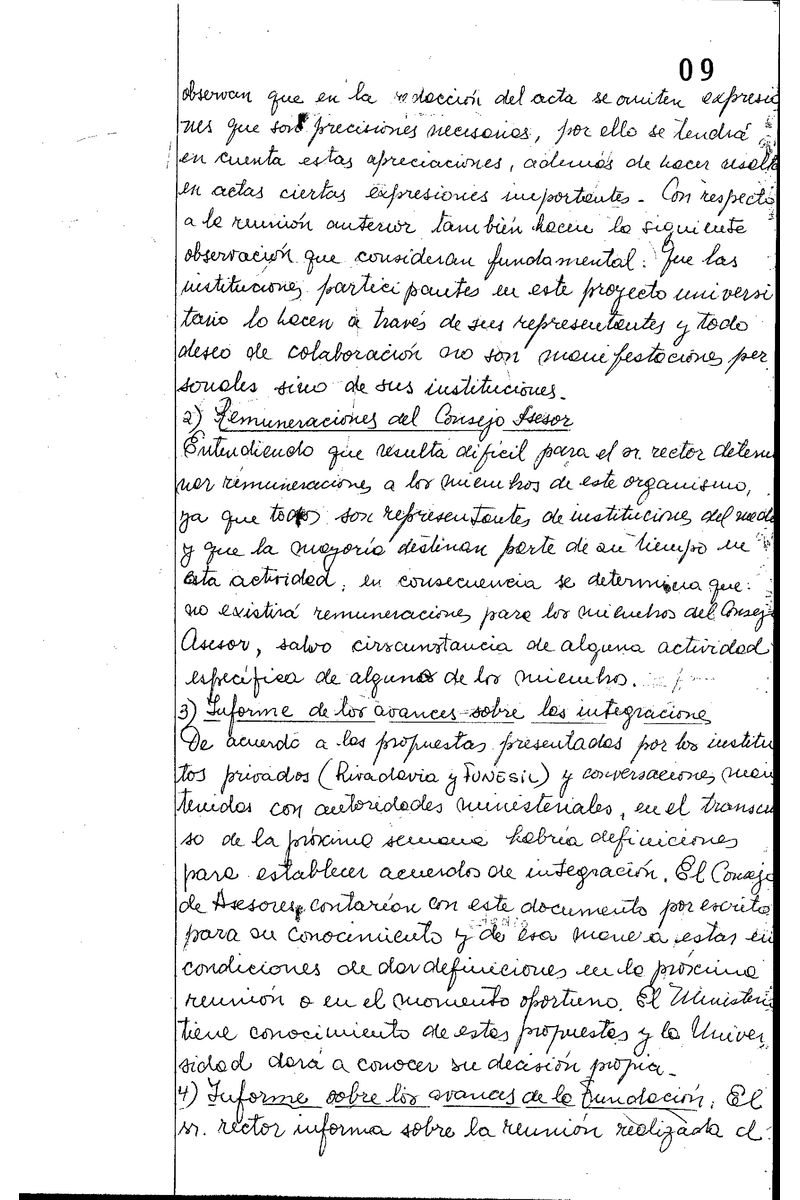 09
observan que en la redacción del acta se omiten expresio
nes que son precisiones necesarias, por ello se tendrá
en cuenta estas apreciaciones, además de hacer resalt
en actas ciertas expresiones importantes. Con respecto
a la reunión anterior también hacen la siguiente
observación que consideran fundamental: Que las
instituciones participantes en este proyecto universi
tario lo hacen a través de sus representantes y todo
deseo de colaboración no son manifestaciones per
sonales sino de sus instituciones.
2) Remuneraciones del Consejo Asesor
Entendiendo que resulta difícil para el sr. rector determi
nar remuneraciones a los miembros de este organismo,
ya que todos son representantes de instituciones del medi
y que la mayoría destinan parte de su tiempo en
esta actividad; en consecuencia se determina que:
no existirá remuneraciones para los miembros del Consej
Asesor, salvo circunstancia de alguna actividad
específica de alguno de los miembro.
3) Informe de los avances sobre las integracione
De acuerdo a las propuestas presentadas por los institu
tos privados (Rivadavia y FUNESIL) y conversaciones man
tenidas con autoridades ministeriales, en el transcu
so de la próxima semana habría definiciones
para establecer acuerdos de integración. El Consejo
de Asesores, contarían con este documento por escrito
para su conocimiento y de esa manera estar en
condiciones de dar definiciones en la próxima
reunión o en el momento oportuno. El Ministeri
tiene conocimiento de estas propuestas y la Univer
sidad dará a conocer su decisión propia.
4) Informe sobre los avances de la Fundación: El
sr. rector informa sobre la reunión realizada el